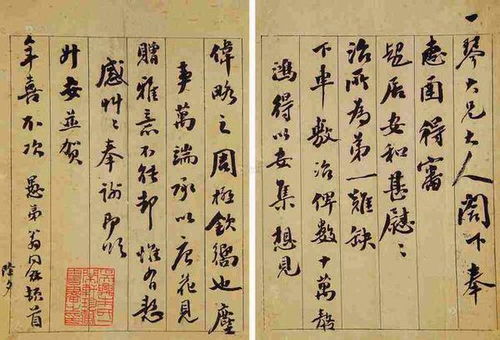 一琴大兄大人閣下奉
惠函得審
起居安和甚慰〻
治所為第一難缺
下車敷治俾數十萬嗸
鴻得以安集想見
偉略之周極欽嚮也塵
事萬端承以唐花見
贈雅意不能却惟有慙
感奉謝即頌
升安並賀
年喜不次 愚弟翁同龢頓首
除夕